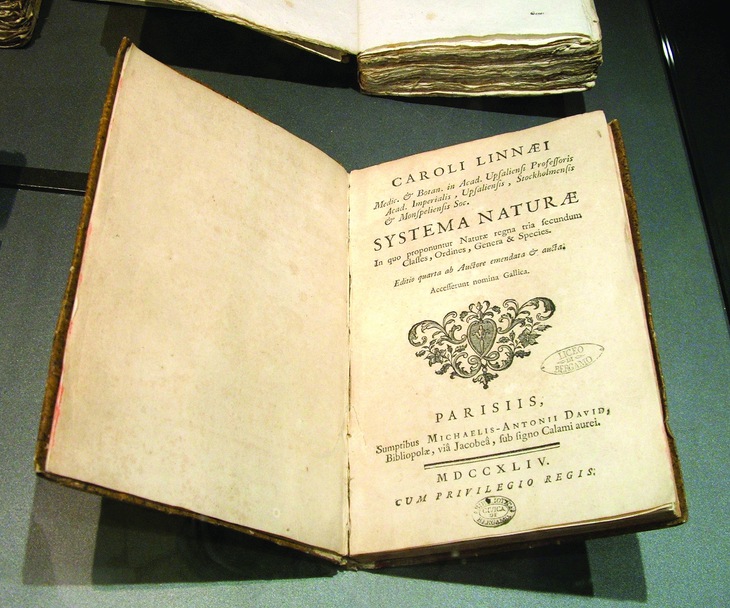 CAROLI LINNÆI
Medic. & Botan. in Acad. Upſalienſi Profeſſoris
Acad. Imperialis, Upſalienſis, Stockholmenſis
& Monſpelienſis Soc.
SYSTEMA NATURÆ
In quo proponuntur Naturæ regna tria ſecundum
Claſſes, Ordines, Genera & Species.
Editio quarta ab Auctore emendata & aucta.
Acceſſerunt nomina Gallica.
LICEO
DI
BERGAMO
PARISIIS,
Sumptibus MICHAELIS-ANTONII DAVID,
Bibliopolæ, viâ Jacobeâ, ſub ſigno Calami aurei.
MDCCXLIV.
CUM PRIVILEGIO REGIS.
CIVICA
DI
BERGAMO